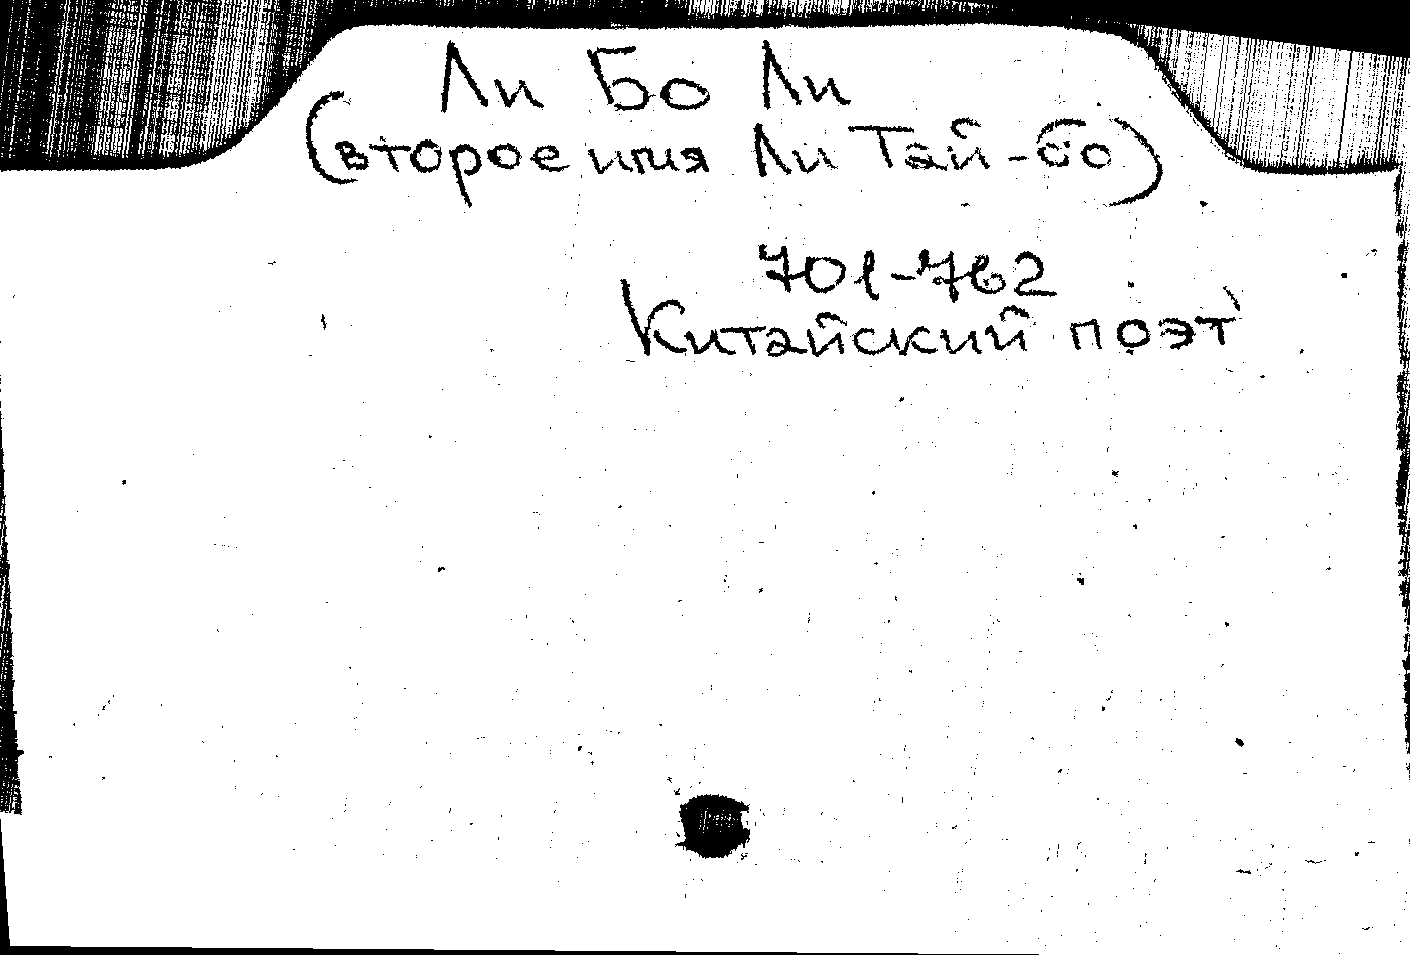 Ли Бо Ли
(второе имя Ли Тай-бо)
701-762
Китайский поэт